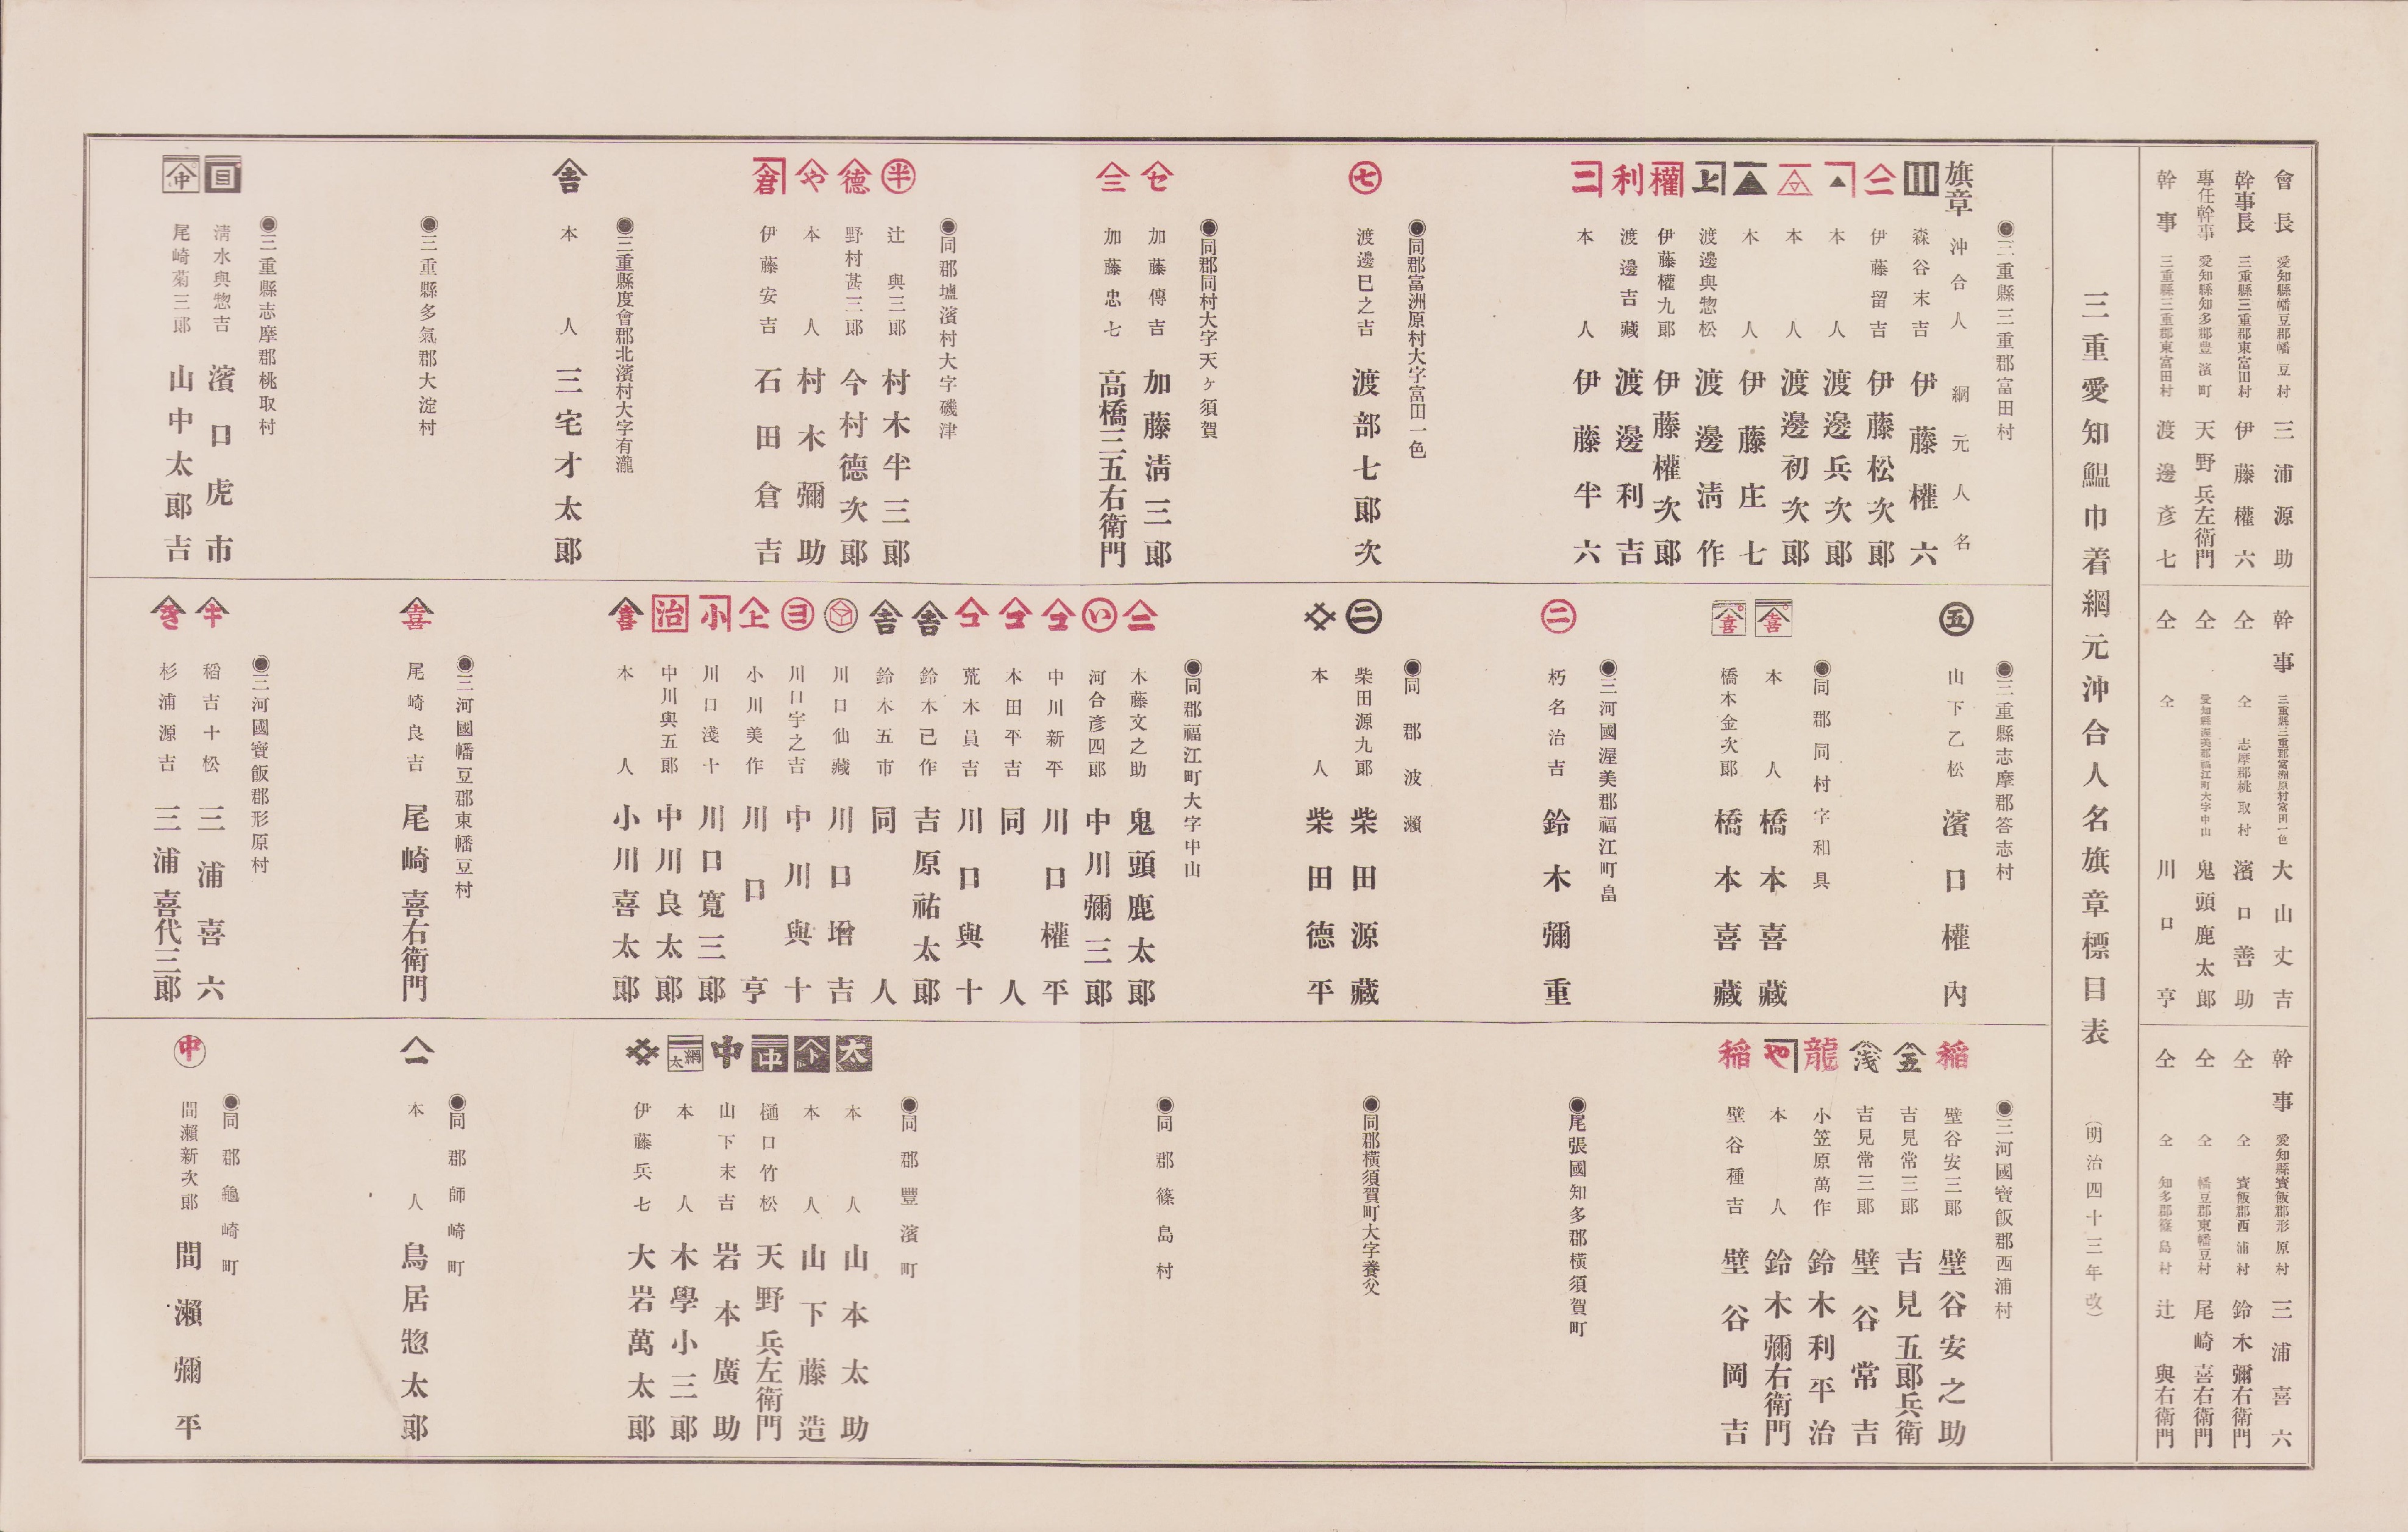 會長 愛知縣幡豆郡幡豆村 三浦源助
幹事長 三重縣三重郡東富田村 伊藤權六
專任幹事 愛知縣知多郡豊濱町 天野兵左衛門
幹事 三重縣三重郡東富田村 渡邊彥七
幹事 三重縣三重郡富洲原村富田一色 大山丈吉
仝 仝 志摩郡桃取村 濱口善助
仝 愛知縣渥美郡福江町大字中山 鬼頭鹿太郎
仝 仝 川口亨
幹事 愛知縣寳飯郡形原村 三浦喜六
仝 仝 寳飯郡西浦村 鈴木彌右衛門
仝 仝 幡豆郡東幡豆村 尾崎喜右衛門
仝 仝 知多郡篠島村 辻與右衛門
三重愛知鰮巾着網元沖合人名旗章標目表 (明治四十三年改)
◉三重縣三重郡富田村
旗章 沖合人 網元人名
森谷末吉 伊藤權六
二 伊藤留吉 伊藤松次郎
本人 渡邊兵次郎
本人 渡邊初次郎
本人 伊藤庄七
上 渡邊與惣松 渡邊淸作
權 伊藤權九郎 伊藤權次郎
利 渡邊吉藏 渡邊利吉
二 本人 伊藤半六
◉同郡富洲原村大字富田一色
七 渡邊巳之吉 渡部七郎次
◉同郡同村大字天ヶ須賀
セ 加藤傳吉 加藤淸三郎
三 加藤忠七 高橋三五右衛門
◉同郡塩濱村大字磯津
半 辻與三郎 村木半三郎
德 野村甚三郎 今村德次郎
や 本人 村木彌助
倉 伊藤安吉 石田倉吉
◉三重縣度會郡北濱村大字有瀧
吉 本人 三宅才太郎
◉三重縣多氣郡大淀村
◉三重縣志摩郡桃取村
目 淸水與惣吉 濱口虎市
中 尾崎菊三郎 山中太郎吉
◉三重縣志摩郡答志村
五 山下乙松 濱口權內
◉同郡同村字和具
喜 本人 橋本喜藏
喜 橋本金次郎 橋本喜藏
◉三河國渥美郡福江町畠
二 朽名治吉 鈴木彌重
◉同郡波瀨
二 柴田源九郎 柴田源藏
本人 柴田德平
◉同郡福江町大字中山
二 木藤文之助 鬼頭鹿太郎
い 河合彥四郎 中川彌三郎
中川新平 川口權平
本田平吉 同人
荒木員吉 川口與十
吉 鈴木己作 吉原祐太郎
吉 鈴木五市 同人
川口仙藏 川口增吉
ヨ 川口宇之吉 中川與十
上 小川美作 川口亨
小 川口淺十 川口寬三郎
治 中川與五郎 中川良太郎
喜 本人 小川喜太郎
◉三河國幡豆郡東幡豆村
喜 尾崎良吉 尾崎喜右衛門
◉三河國寳飯郡形原村
キ 稻吉十松 三浦喜六
き 杉浦源吉 三浦喜代三郎
◉三河國寳飯郡西浦村
稲 壁谷安三郎 壁谷安之助
五 吉見常三郎 吉見五郎兵衛
浅 吉見常三郎 壁谷常吉
龍 小笠原萬作 鈴木利平治
や 本人 鈴木彌右衛門
稲 壁谷種吉 壁谷岡吉
◉尾張國知多郡横須賀町
◉同郡横須賀町大字養父
◉同郡篠島村
◉同郡豐濱町
太 本人 山本太助
ト 本人 山下藤造
中 樋口竹松 天野兵左衛門
中 山下末吉 岩本廣助
網太 本人 木學小三郎
伊藤兵七 大岩萬太郎
◉同郡師崎町
一 本人 鳥居惣太郎
◉同郡龜崎町
中 間瀨新次郎 間瀨彌平